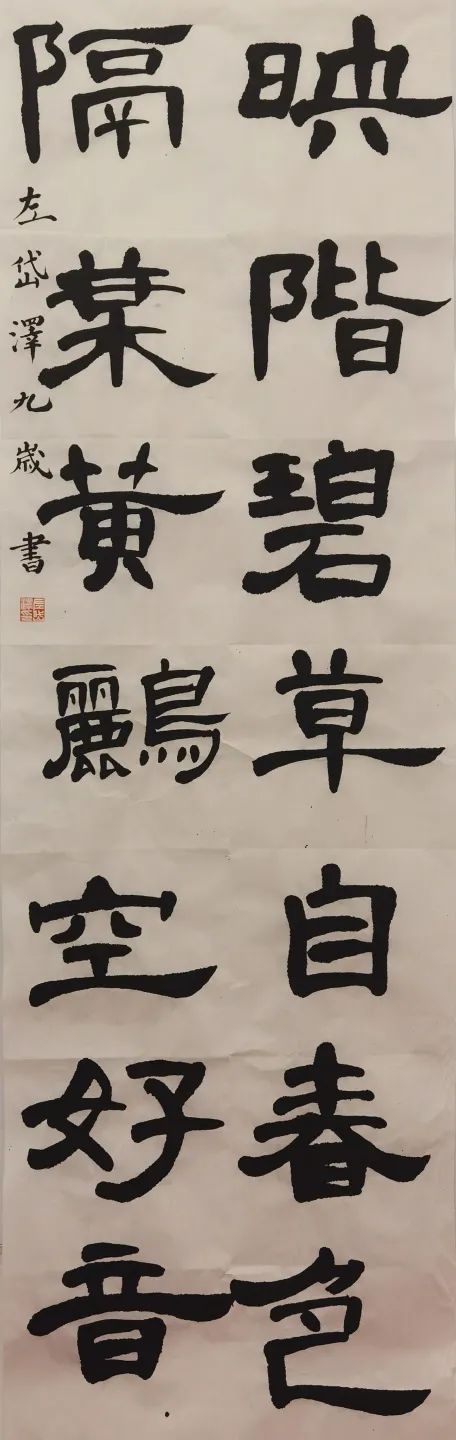 映階碧草自春色
隔葉黄鸝空好音
左岱澤九歲書